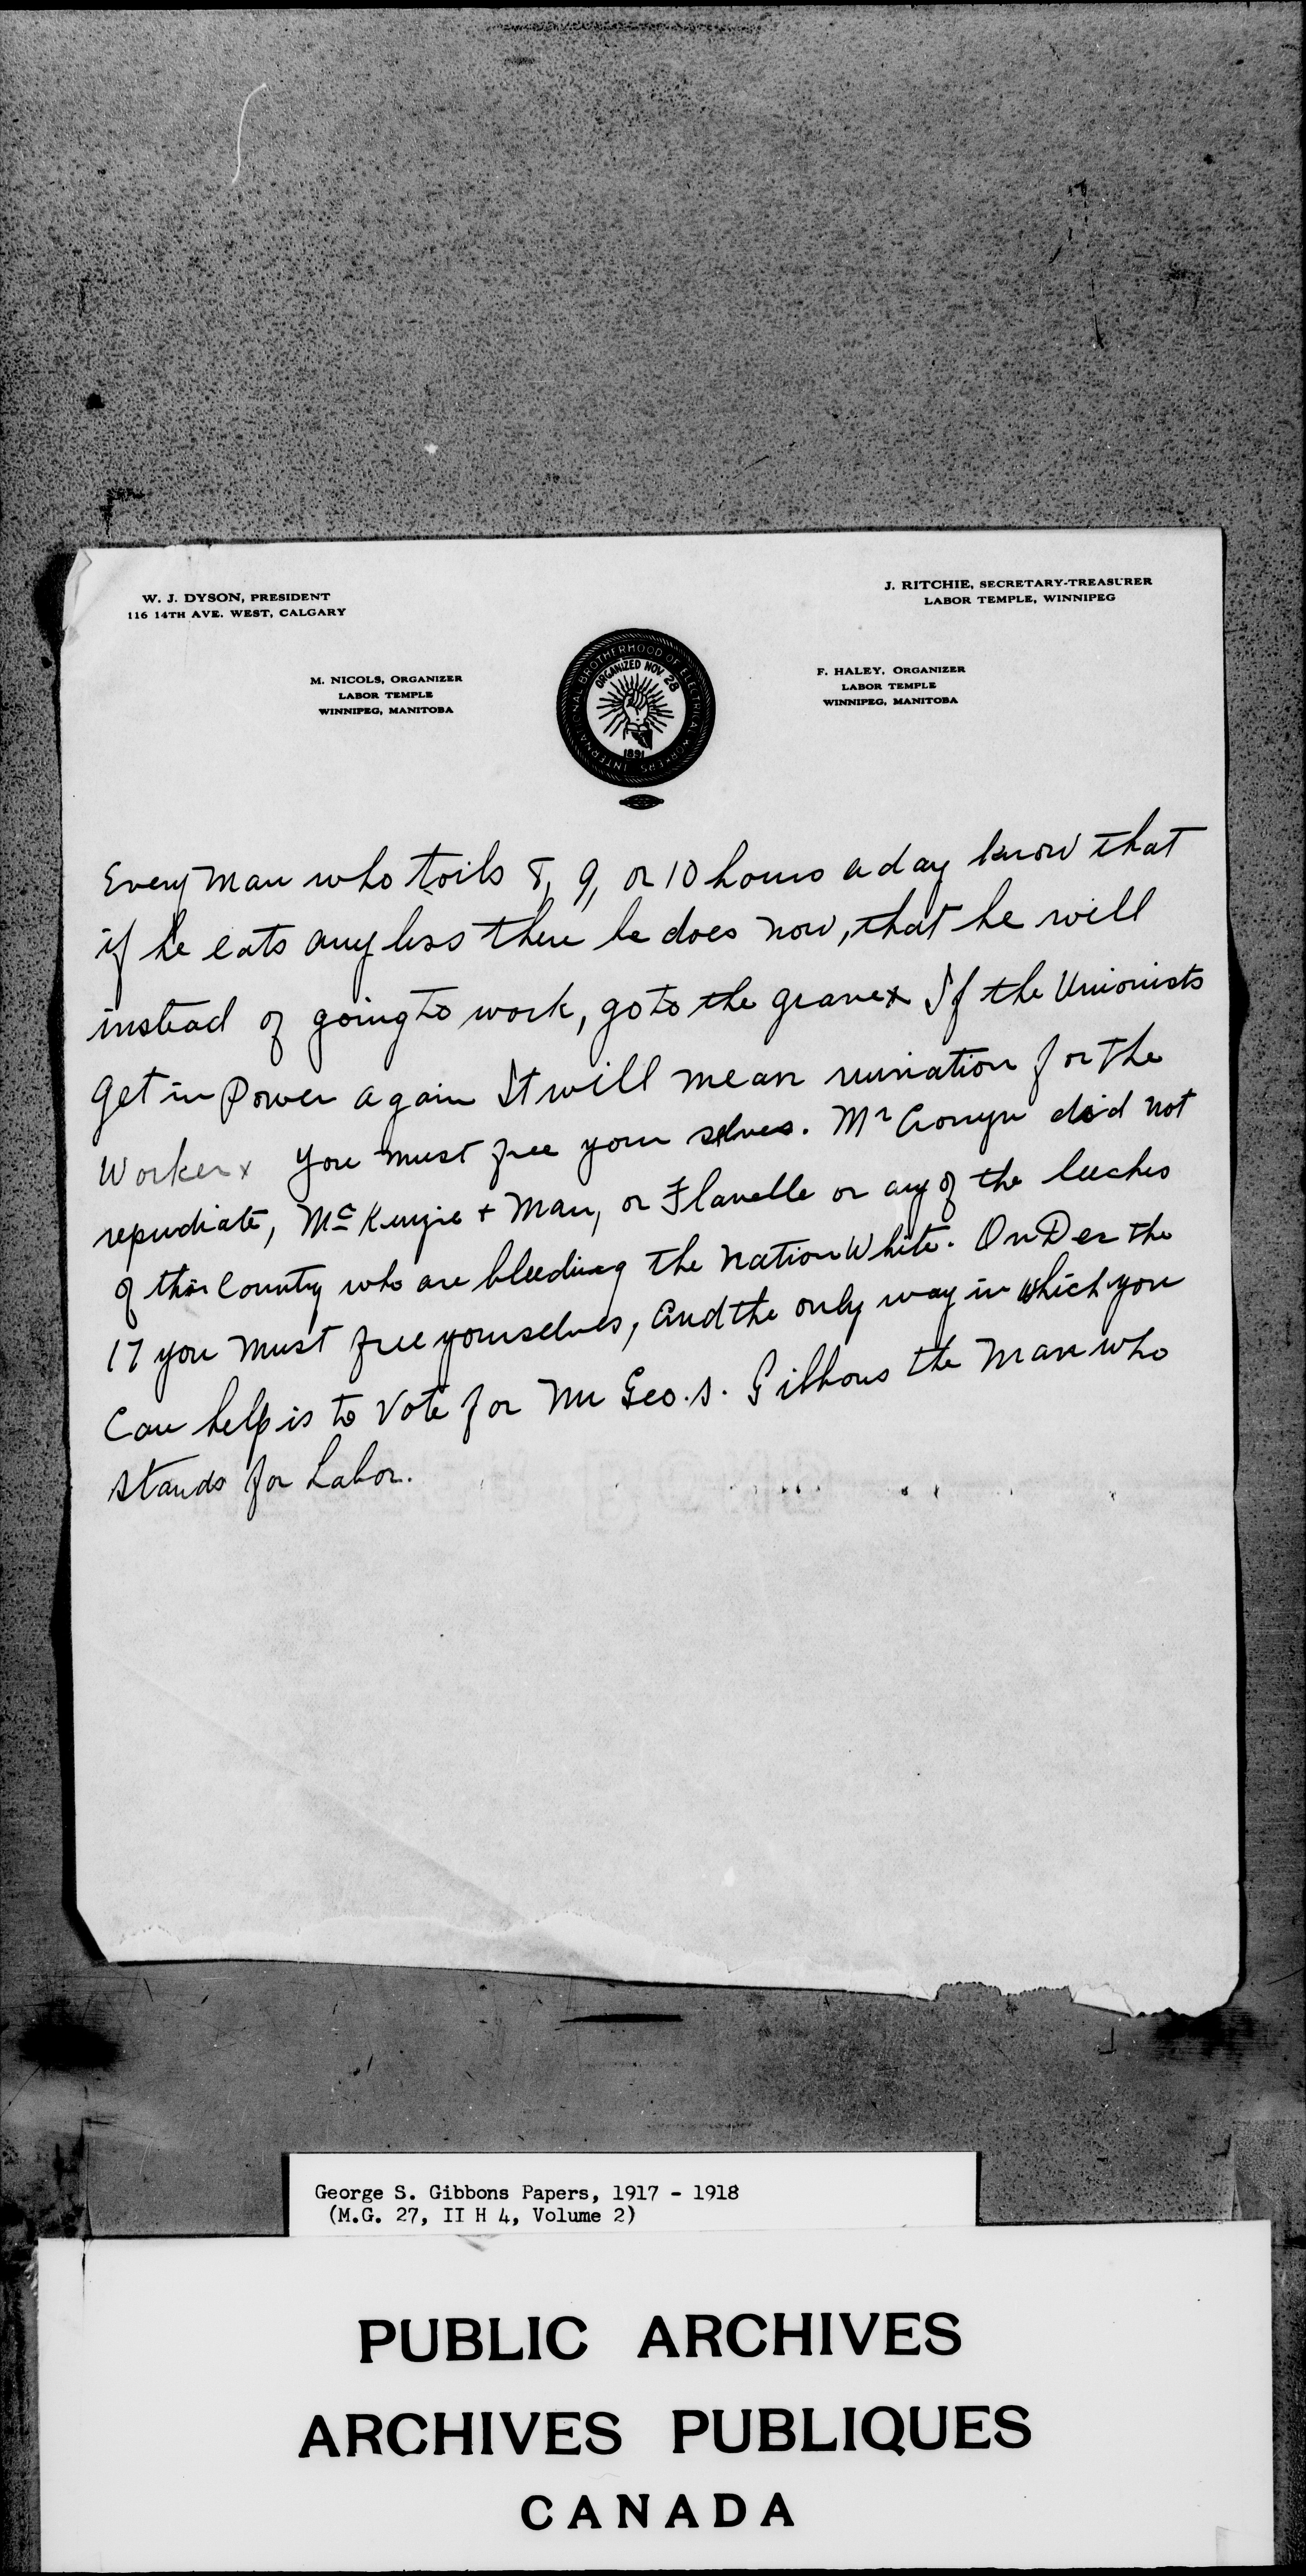 W. J. DYSON, PRESIDENT
116 14TH AVE. WEST, CALGARY
J. RITCHIE, SECRETARY-TREASURER
LABOR TEMPLE, WINNIPEG
M. NICOLS, ORGANIZER
LABOR TEMPLE
WINNIPEG, MANITOBA
F. HALEY, ORGANIZER
LABOR TEMPLE
WINNIPEG, MANITOBA
INTERNATIONAL BROTHERHOOD OF ELECTRICAL WORKERS
ORGANIZED NOV 28
1891
Every man who toils 8, 9, or 10 hours a day know that
if he eats any less then he does now, that he will
instead of going to work, go to the grave x If the Unionists
get in Power again It will mean ruination for the
Worker x You must free your selves. Mr Cronyn did not
repudiate, Mc Kenzie + Man, or Flavelle or any of the leeches
of this Country who are bleeding the nation White. On Dec the
17 you must free yourselves, and the only way in which you
Can help is to Vote for Mr Geo. S. Gibbons the man who
stands for Labor.
George S. Gibbons Papers, 1917 - 1918
(M.G. 27, II H 4, Volume 2)
PUBLIC ARCHIVES
ARCHIVES PUBLIQUES
CANADA